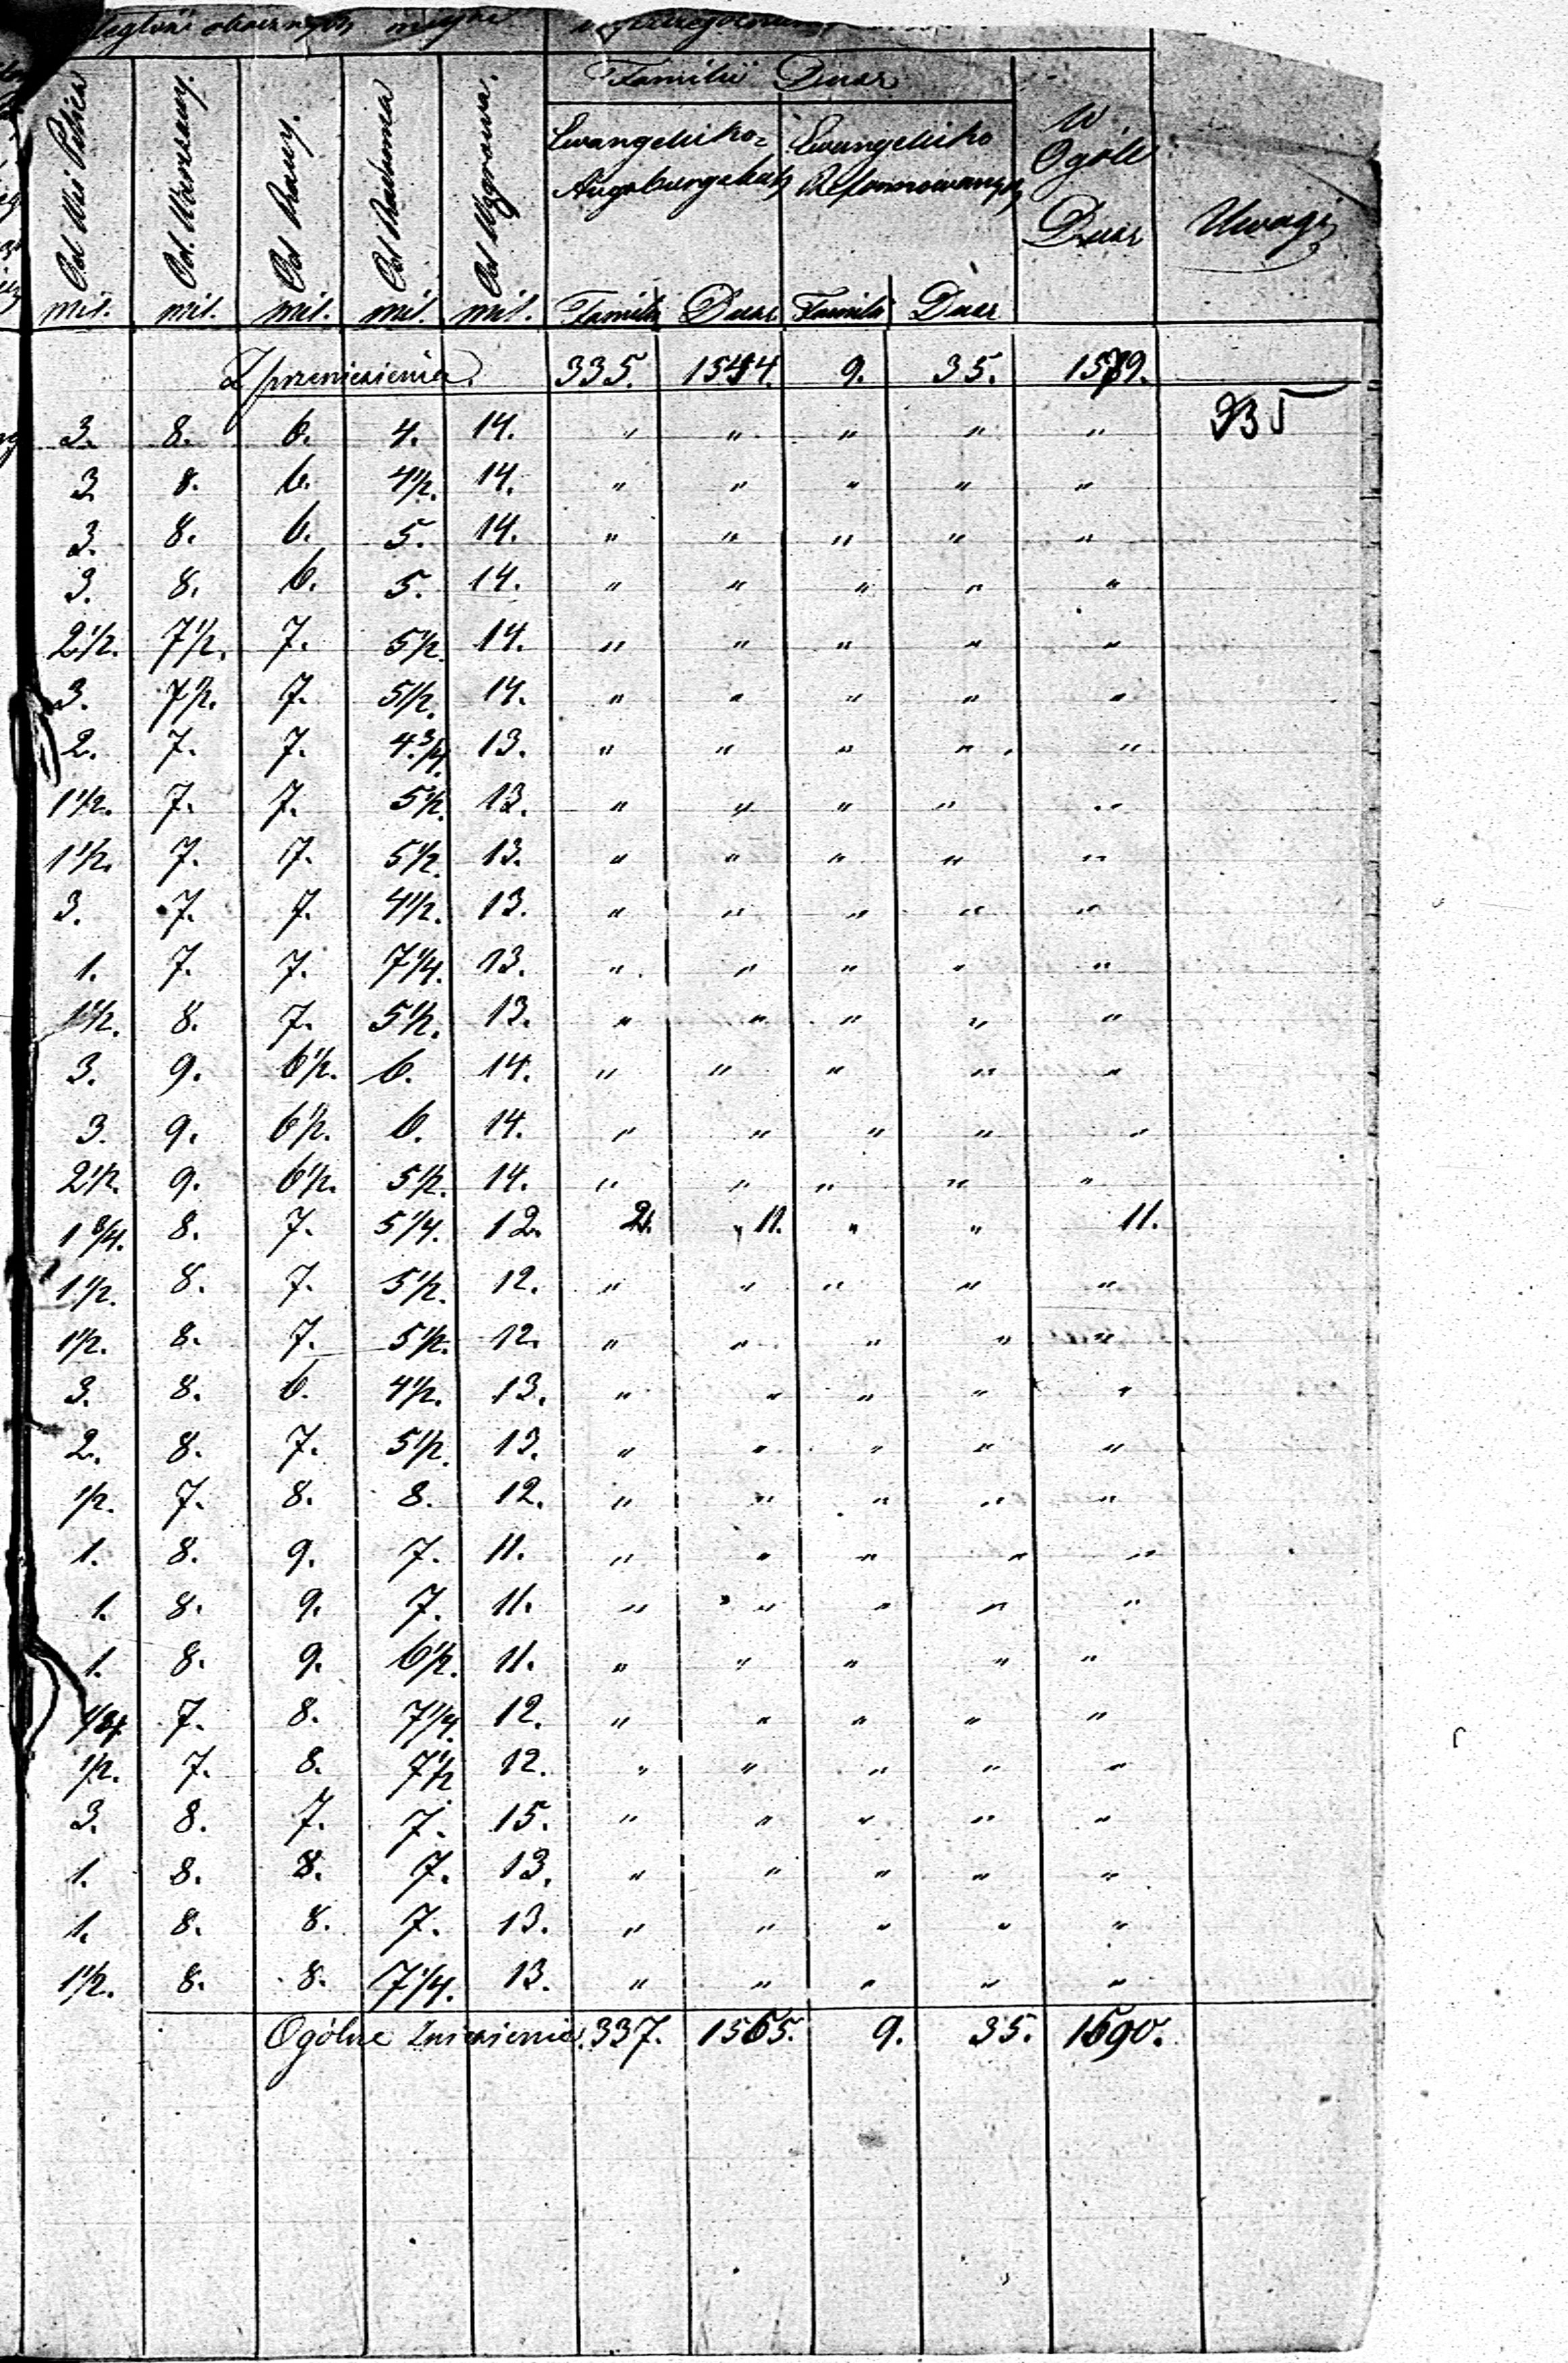 Familii Dusz
Ewangelicko- Ewangelicko W
Augsburgskich Reformowanych Ogóle
Dusz Uwagi
Od Mta Pilica Od Warszawy. Od Rawy. Od Radomia Od Węgrowa.
mil. mil. mil. mil. mil. Familii Dusz Familii Dusz
Z przeniesienia. 335. 1544. 9. 35. 1579.
335
3. 8. 6. 4. 14. " " " " "
3. 8. 6. 4½. 14. " " " " "
3. 8. 6. 5. 14. " " " " "
3. 8. 6. 5. 14. " " " " "
2½. 7½. 7. 5½. 14. " " " " "
3. 7½. 7. 5½. 14. " " " " "
2. 7. 7. 4¾. 13. " " " " "
1½. 7. 7. 5½. 13. " " " " "
1½. 7. 7. 5½. 13. " " " " "
3. 7. 7. 4½. 13. " " " " "
1. 7. 7. 7¼. 13. " " " " "
1½. 8. 7. 5½. 13. " " " " "
3. 9. 6½. 6. 14. " " " " "
3. 9. 6½. 6. 14. " " " " "
2½. 9. 6½. 5½. 14. " " " " "
1¾. 8. 7. 5¼. 12. 2. 11. " " 11.
1½. 8. 7. 5½. 12. " " " " "
1½. 8. 7. 5½. 12. " " " " "
3. 8. 6. 4½. 13. " " " " "
2. 8. 7. 5½. 13. " " " " "
½. 7. 8. 8. 12. " " " " "
1. 8. 9. 7. 11. " " " " "
1. 8. 9. 7. 11. " " " " "
1. 8. 9. 6½. 11. " " " " "
7. 8. 7¼. 12. " " " " "
½. 7. 8. 7½ 12. " " " " "
3. 8. 7. 7. 15. " " " " "
1. 8. 8. 7. 13. " " " " "
1. 8. 8. 7. 13. " " " " "
1½. 8. 8. 7¼. 13. " " " " "
Ogólne Zniesienie. 337. 1565. 9. 35. 1590.